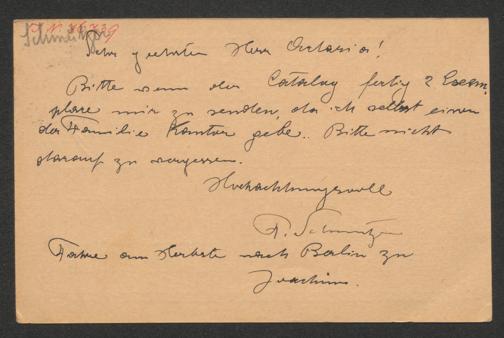 I. N. 45.739
Sehr geehrter Herr Artaria!
Bitte wenn der Catalog fertig 2 Exem-
plare mir zu senden, da ich selbst einen
der Familie Kantor gebe. Bitte nicht
darauf zu vergessen.
Hochachtungsvoll
Fahre am Herbste nach Berlin zu
Joachim.